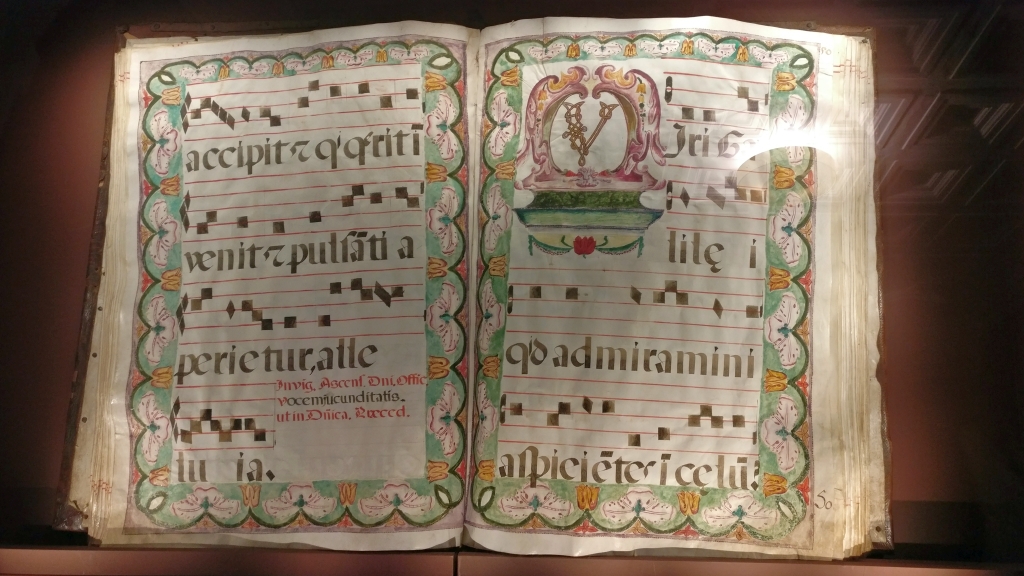 accipit ⁊ q' q̄riti
venit ⁊ pulsāti a
perietur, alle
Invig. Ascens. Dni. Offic
vocem iucunditatis.
ut in Dñica. Præced.
lu ia.
Viri Ga
lilę i
qd admiramini
aspiciētes ī cęlū?
50